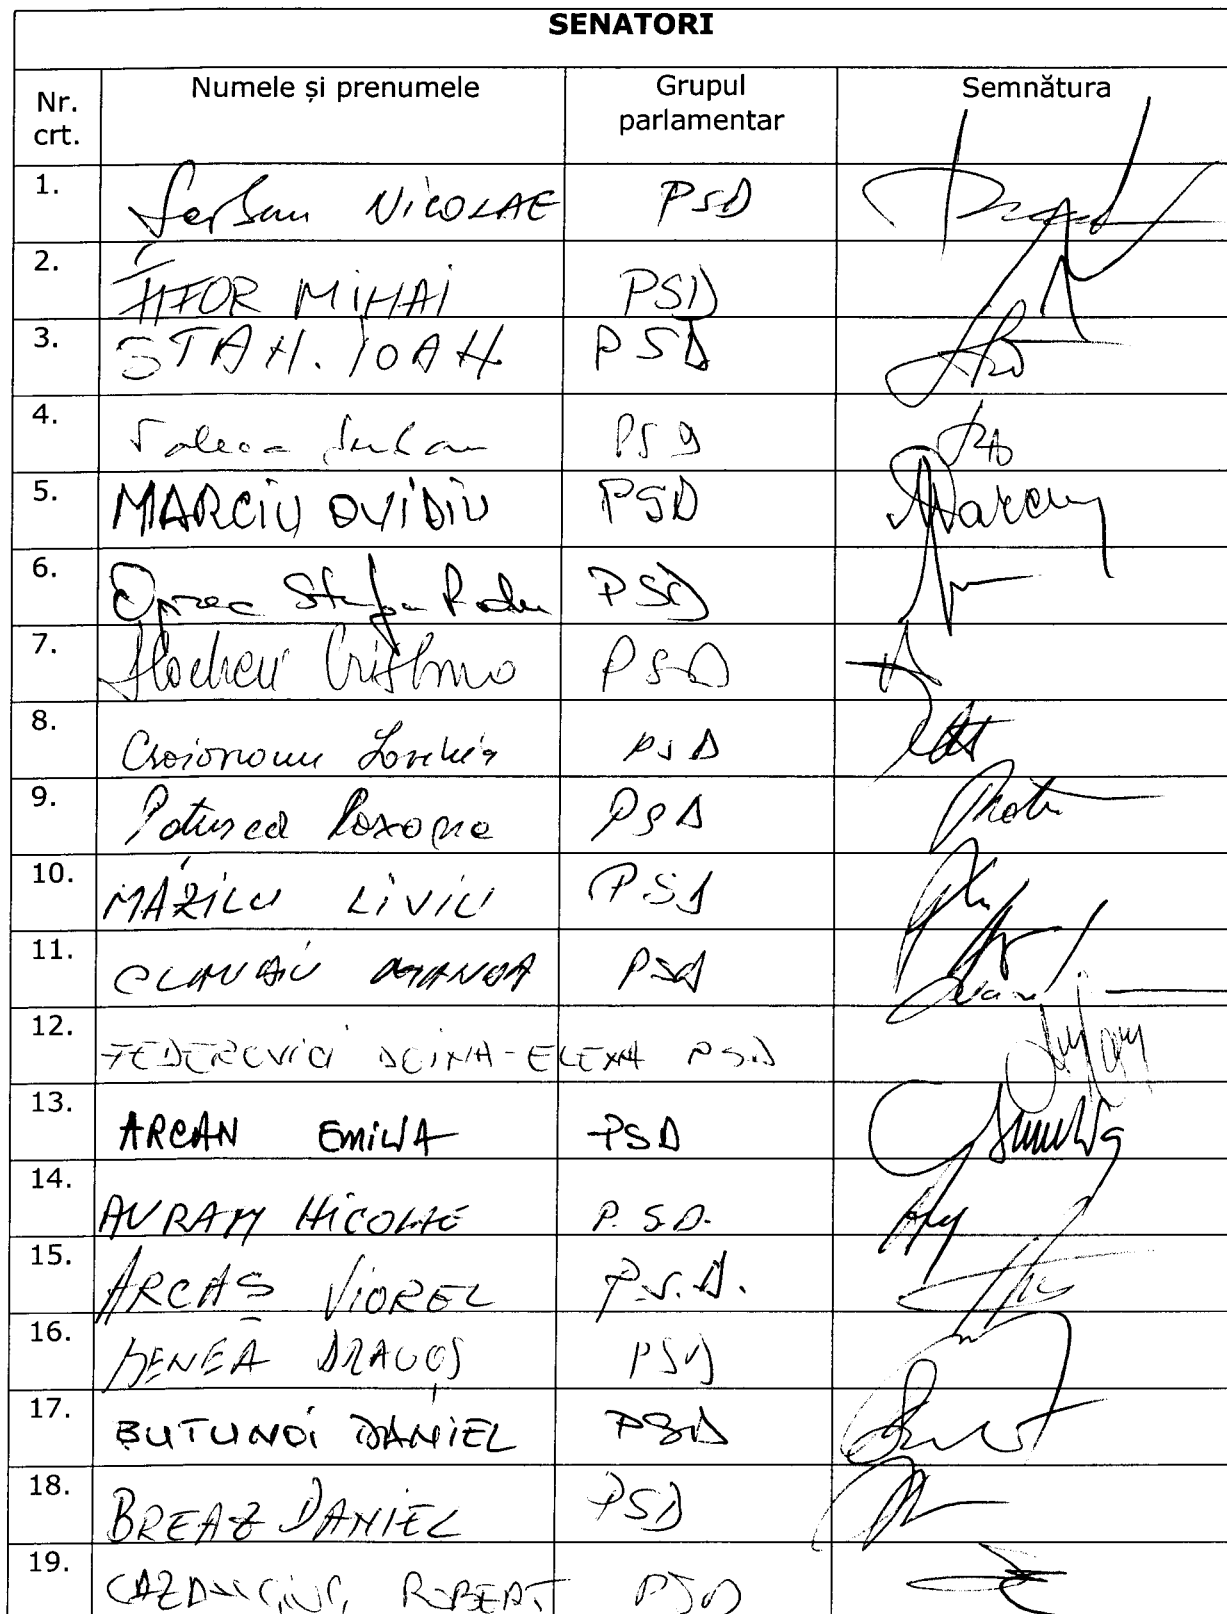 SENATORI
Nr. crt. Numele și prenumele Grupul parlamentar Semnătura
1. Șerban NICOLAE PSD
2. FIFOR MIHAI PSD
3. STAN IOAN PSD
4. Șerban PSD
5. MARCIU OVIDIU PSD Marciu
6. Oprea Ștefan Radu PSD
7. Cristina PSD
8. PSD
9. Pațurcă Roxana PSD
10. MAZILU LIVIU PSD
11. CLAUDIU MANDA PSD
12. FEDEROVICI DOINA-ELENA PSD
13. ARCAN EMILIA PSD
14. AVRAM NICOLAE P.S.D.
15. ARCAȘ VIOREL P.S.D.
16. BENEA DRAGOȘ PSD
17. BUTUNOI DANIEL PSD
18. BREAZ DANIEL PSD
19. CAZANCIUC ROBERT PSD